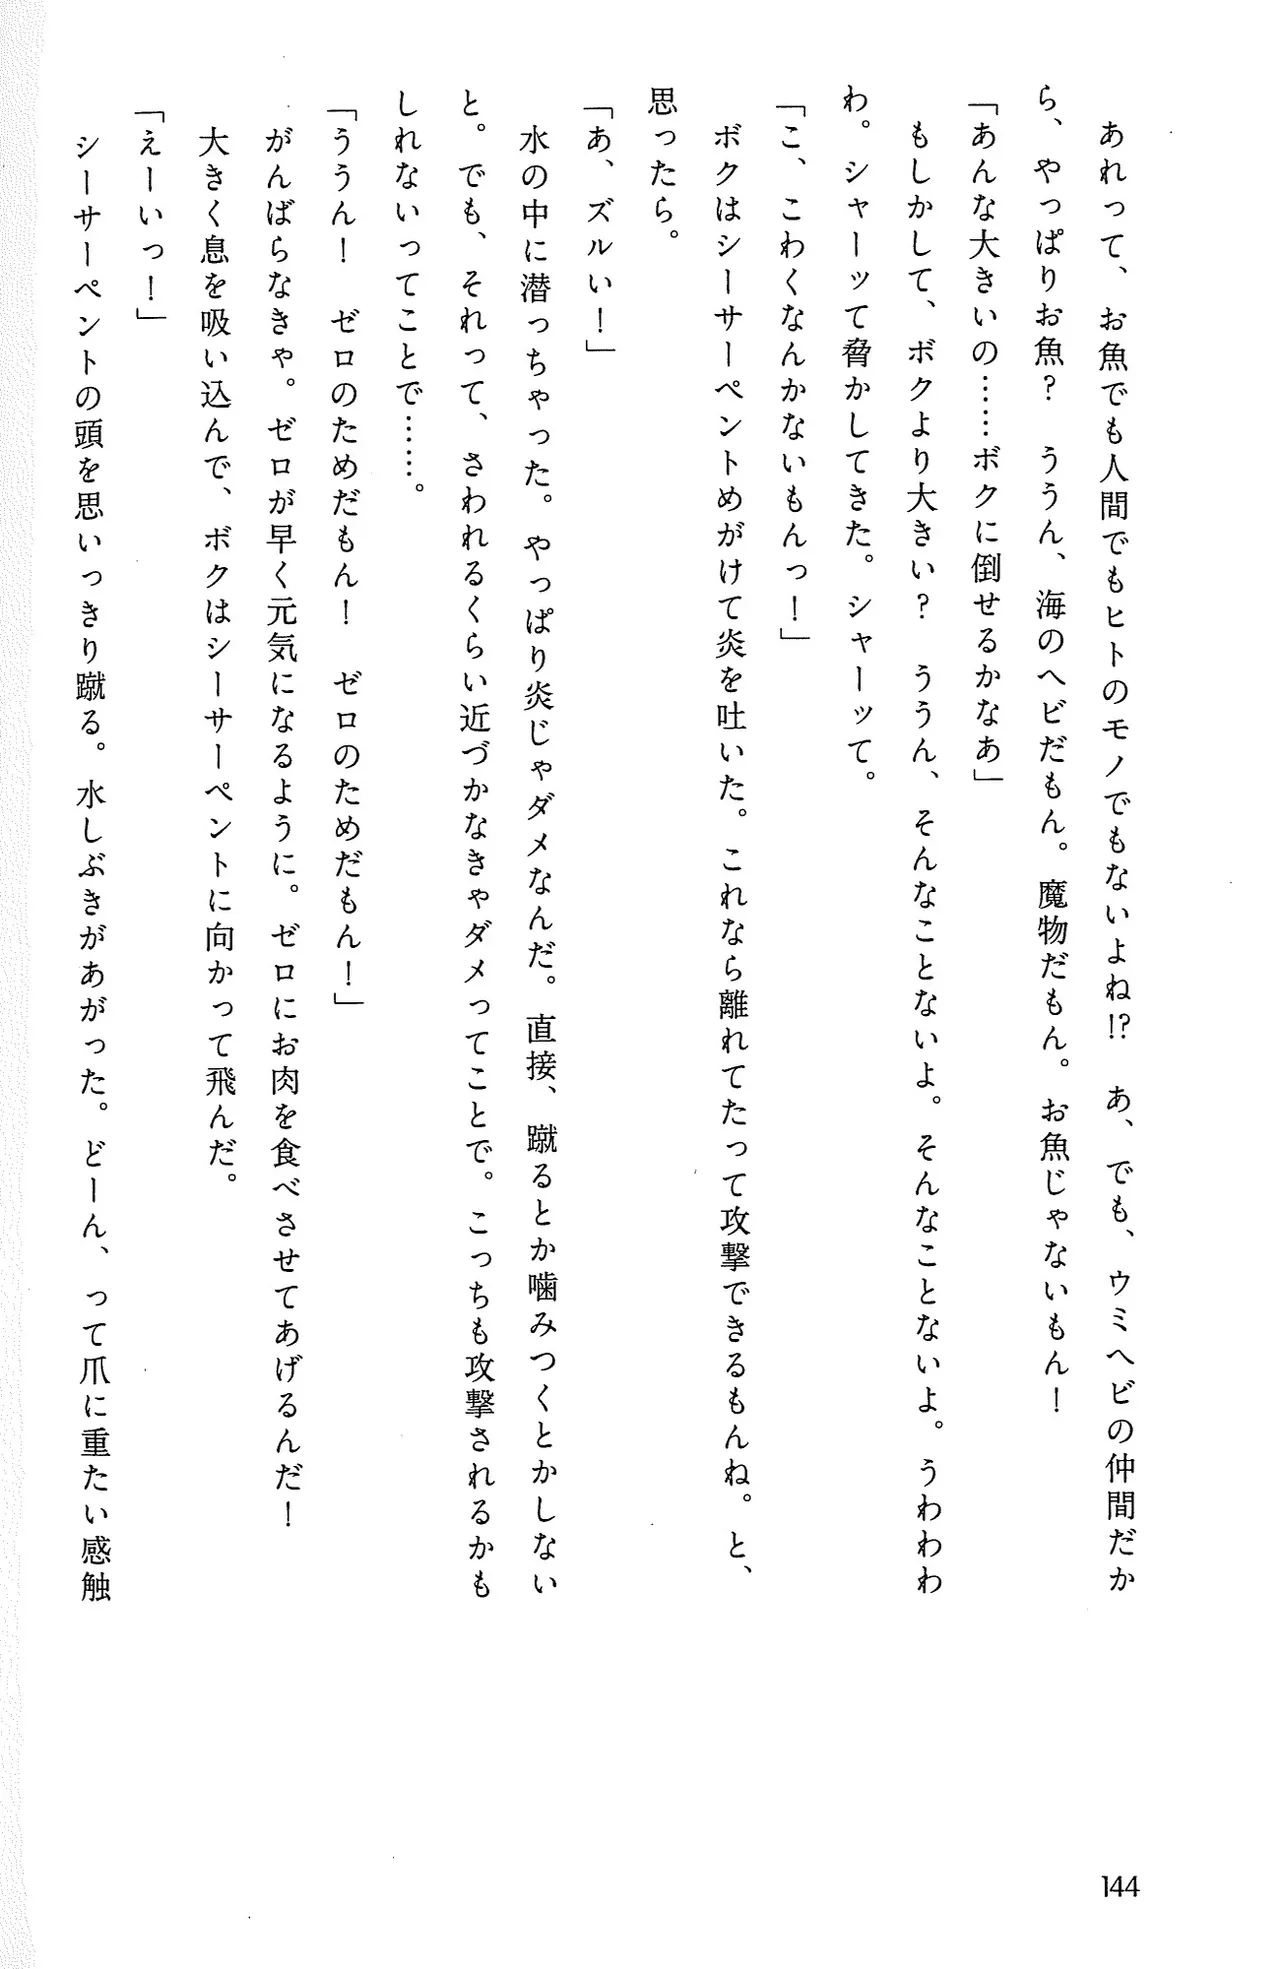 あれって、お魚でも人間でもヒトのモノでもないよね!?　あ、でも、ウミヘビの仲間だか
ら、やっぱりお魚？　ううん、海のヘビだもん。魔物だもん。お魚じゃないもん！
「あんな大きいの……ボクに倒せるかなあ」
　もしかして、ボクより大きい？　ううん、そんなことないよ。そんなことないよ。うわわわ
わ。シャーッて脅かしてきた。シャーッて。
「こ、こわくなんかないもんっ！」
　ボクはシーサーペントめがけて炎を吐いた。これなら離れてたって攻撃できるもんね。と、
思ったら。
「あ、ズルい！」
　水の中に潜っちゃった。やっぱり炎じゃダメなんだ。直接、蹴るとか噛みつくとかしない
と。でも、それって、さわれるくらい近づかなきゃダメってことで。こっちも攻撃されるかも
しれないってことで……。
「ううん！　ゼロのためだもん！　ゼロのためだもん！」
　がんばらなきゃ。ゼロが早く元気になるように。ゼロにお肉を食べさせてあげるんだ！
　大きく息を吸い込んで、ボクはシーサーペントに向かって飛んだ。
「えーいっ！」
　シーサーペントの頭を思いっきり蹴る。水しぶきがあがった。どーん、って爪に重たい感触
144